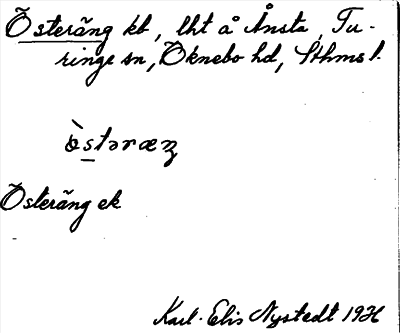 Österäng kb, lht å Ånsta, Tu-
ringe sn, Öknebo hd, Sthms l.
òstəræŋ
Österäng ek
Karl-Elis Nystedt 1936